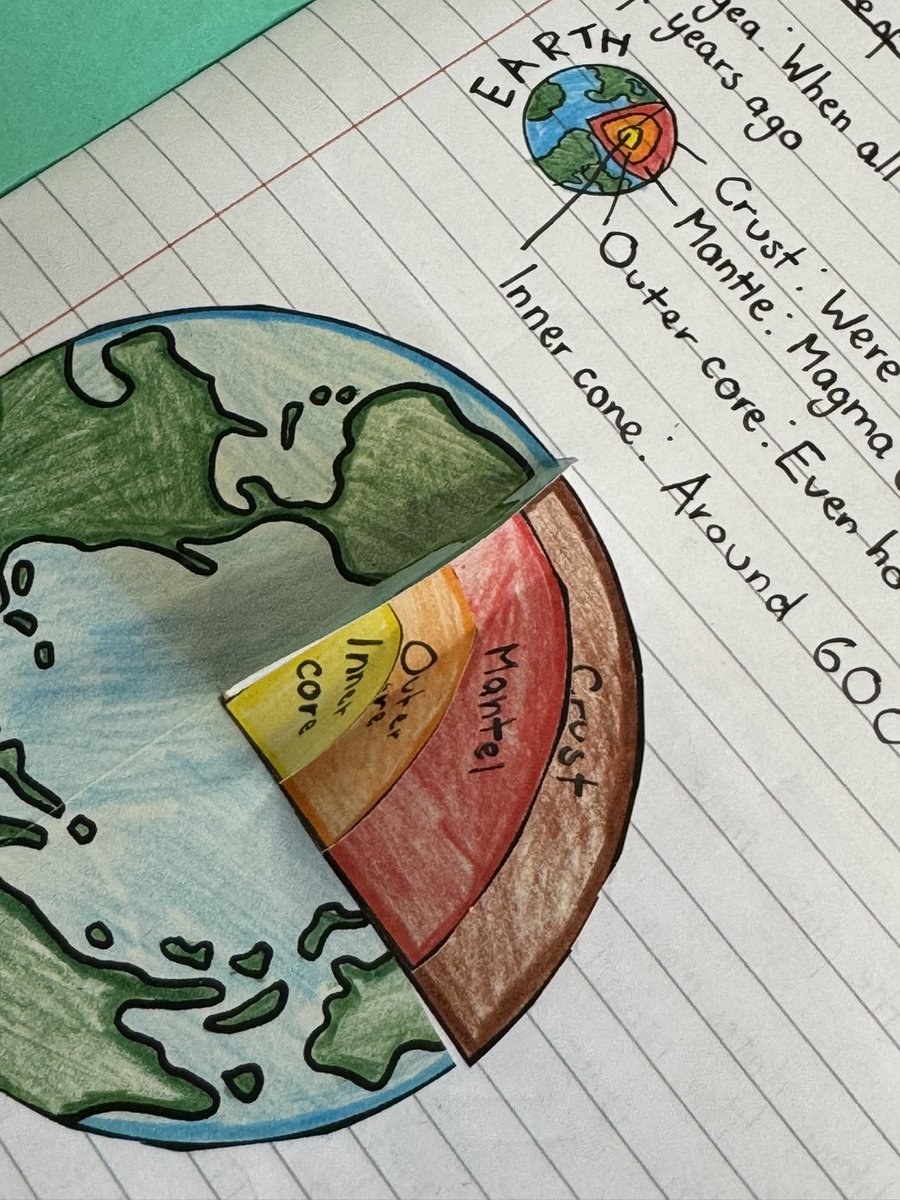 gea: When all
years ago
EARTH
Crust: Were
Mantle: Magma
Outer core: Even ho
Inner cone: Around 600
Inner
core
Outer
core
Mantel
Crust